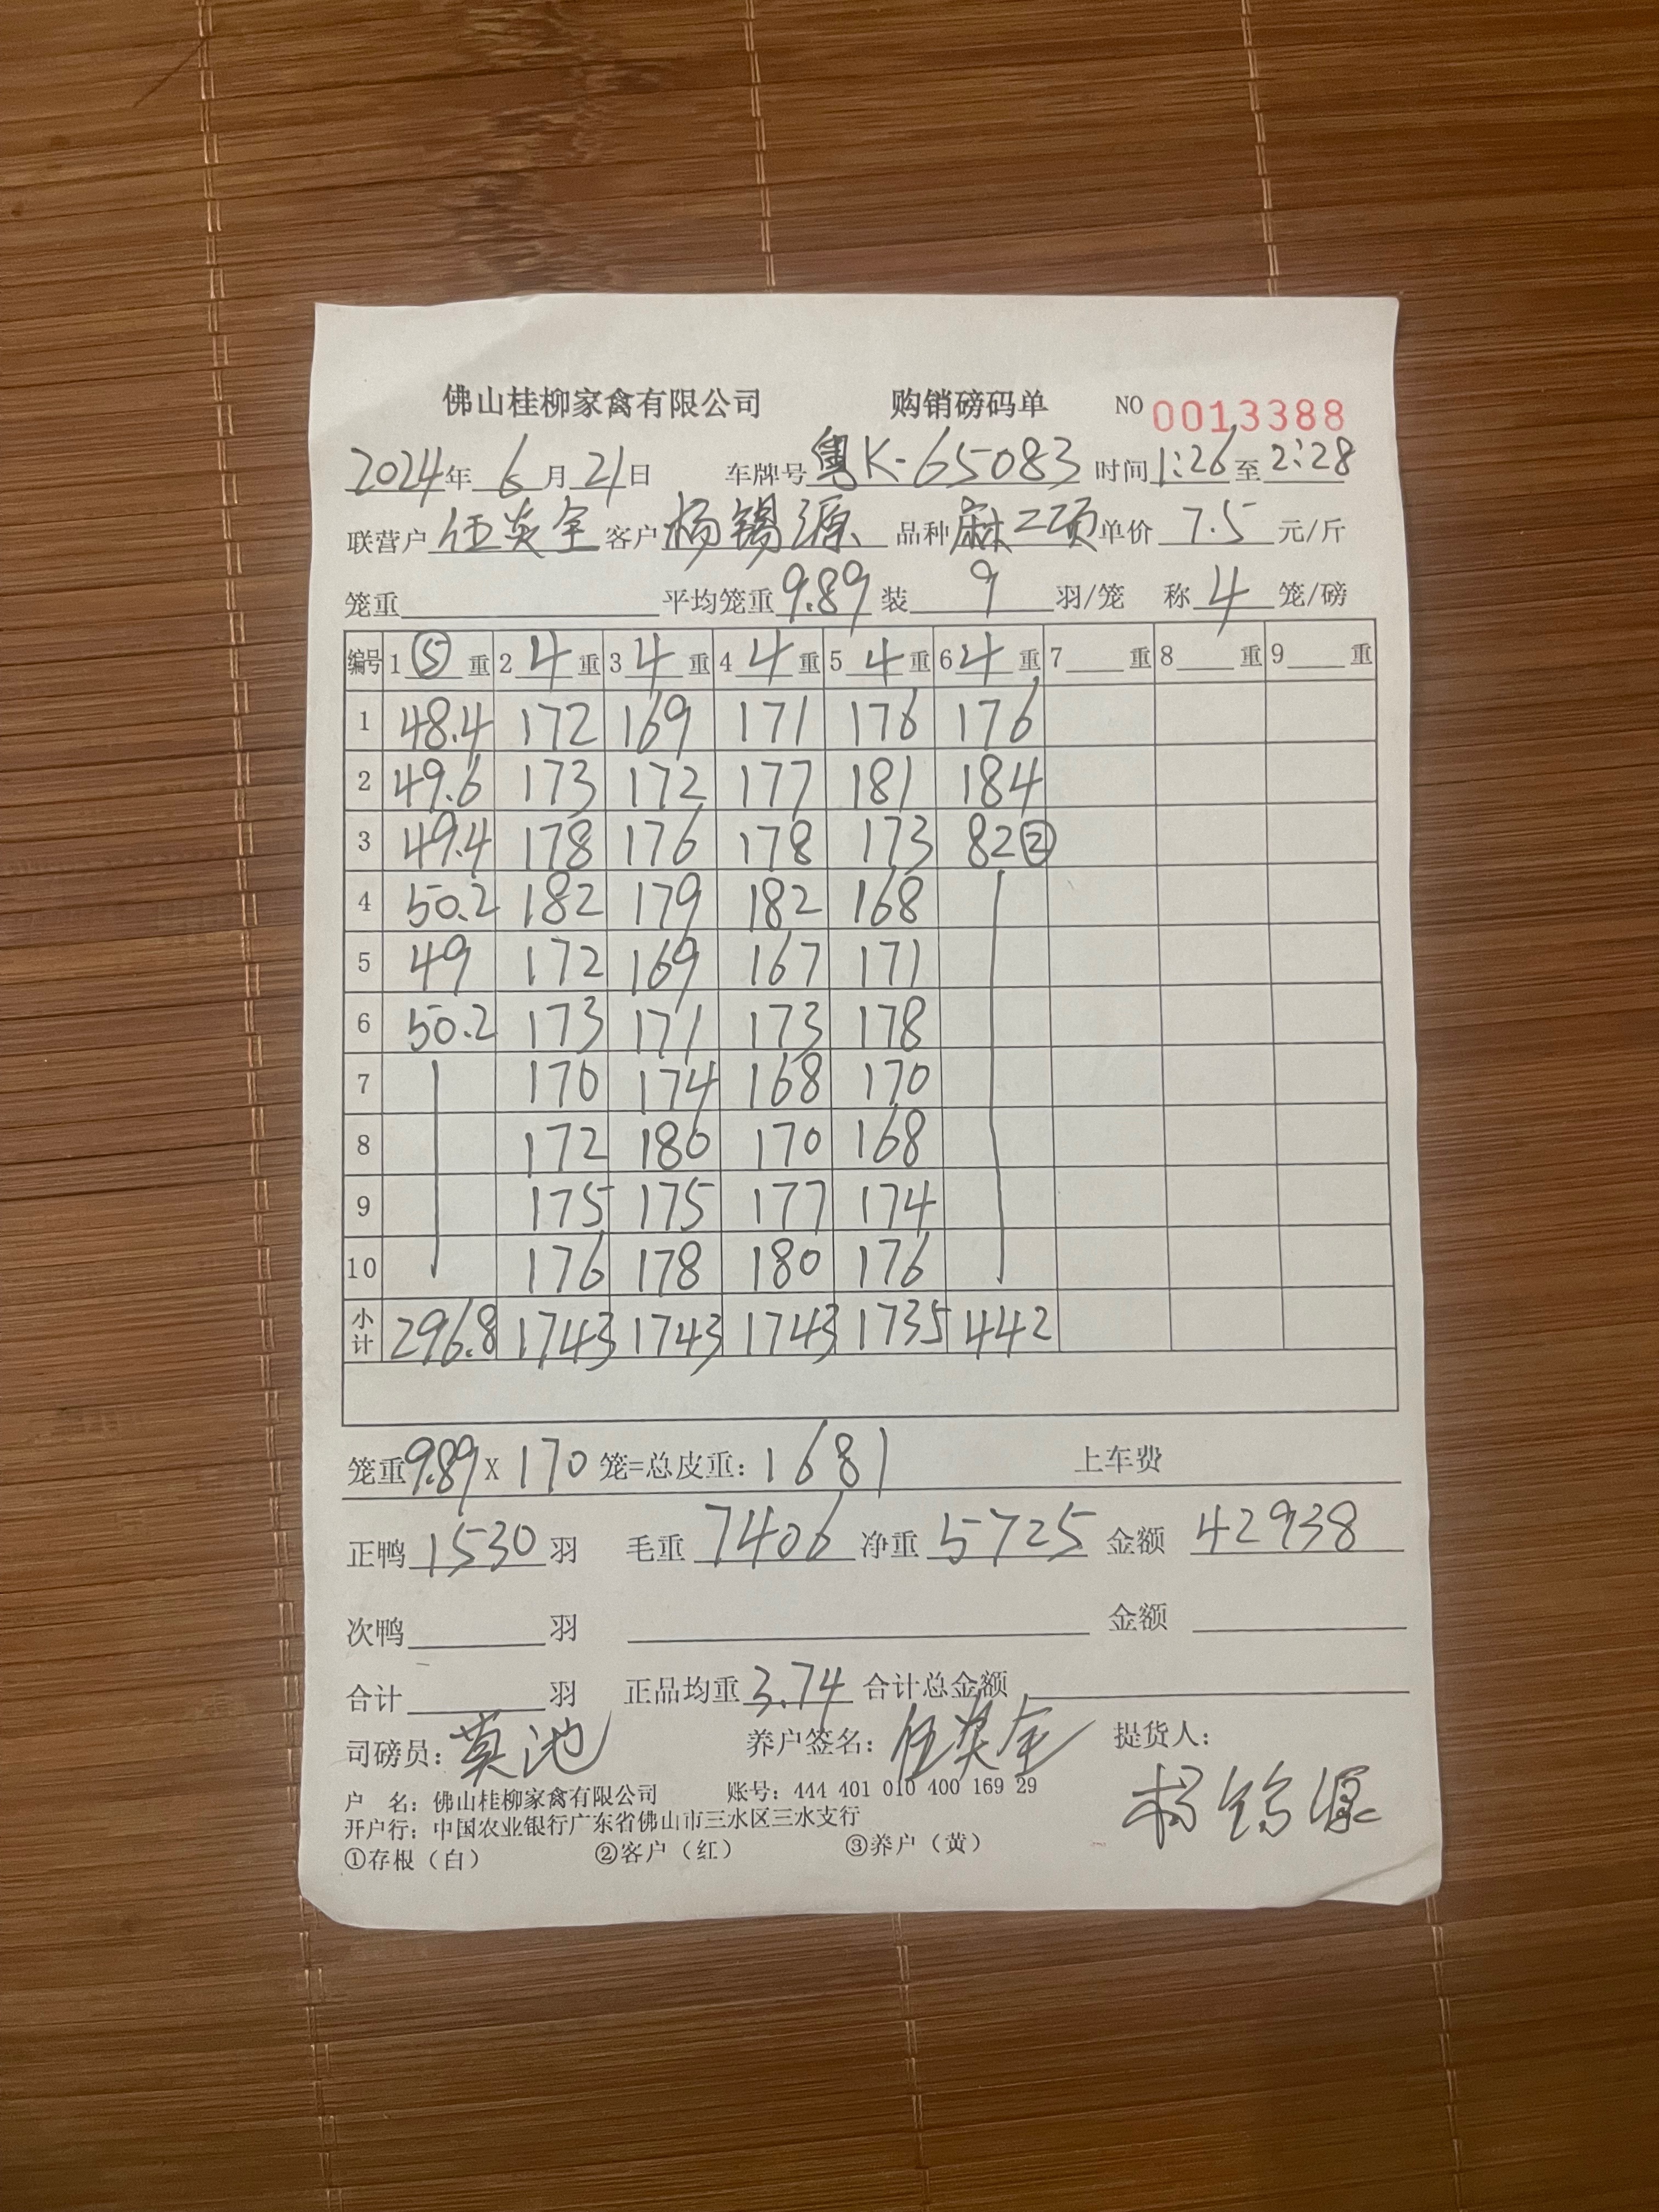 佛山桂柳家禽有限公司 购销磅码单 NO 0013388
2024年 6 月 21 日 车牌号 粤K-65083 时间 1:26 至 2:28
联营户 伍炎全 客户 杨锡源 品种 麻二项 单价 7.5 元/斤
笼重 平均笼重 9.89 装 9 羽/笼 称 4 笼/磅
编号 1 ⑤ 重 2 4 重 3 4 重 4 4 重 5 4 重 6 4 重 7 重 8 重 9 重
1 48.4 172 169 171 176 176
2 49.6 173 172 177 181 184
3 49.4 178 176 178 173 82②
4 50.2 182 179 182 168
5 49 172 169 167 171
6 50.2 173 171 173 178
7 170 174 168 170
8 172 180 170 168
9 175 175 177 174
10 176 178 180 176
小计 296.8 1743 1743 1743 1735 442
笼重 9.89 X 170 笼=总皮重: 1681 上车费
正鸭 1530 羽 毛重 7406 净重 5725 金额 42938
次鸭 羽 金额
合计 羽 正品均重 3.74 合计总金额
司磅员: 莫池 养户签名: 伍炎全 提货人:
杨锡源
户 名: 佛山桂柳家禽有限公司 账号: 444 401 010 400 169 29
开户行: 中国农业银行广东省佛山市三水区三水支行
①存根（白） ②客户（红） ③养户（黄）